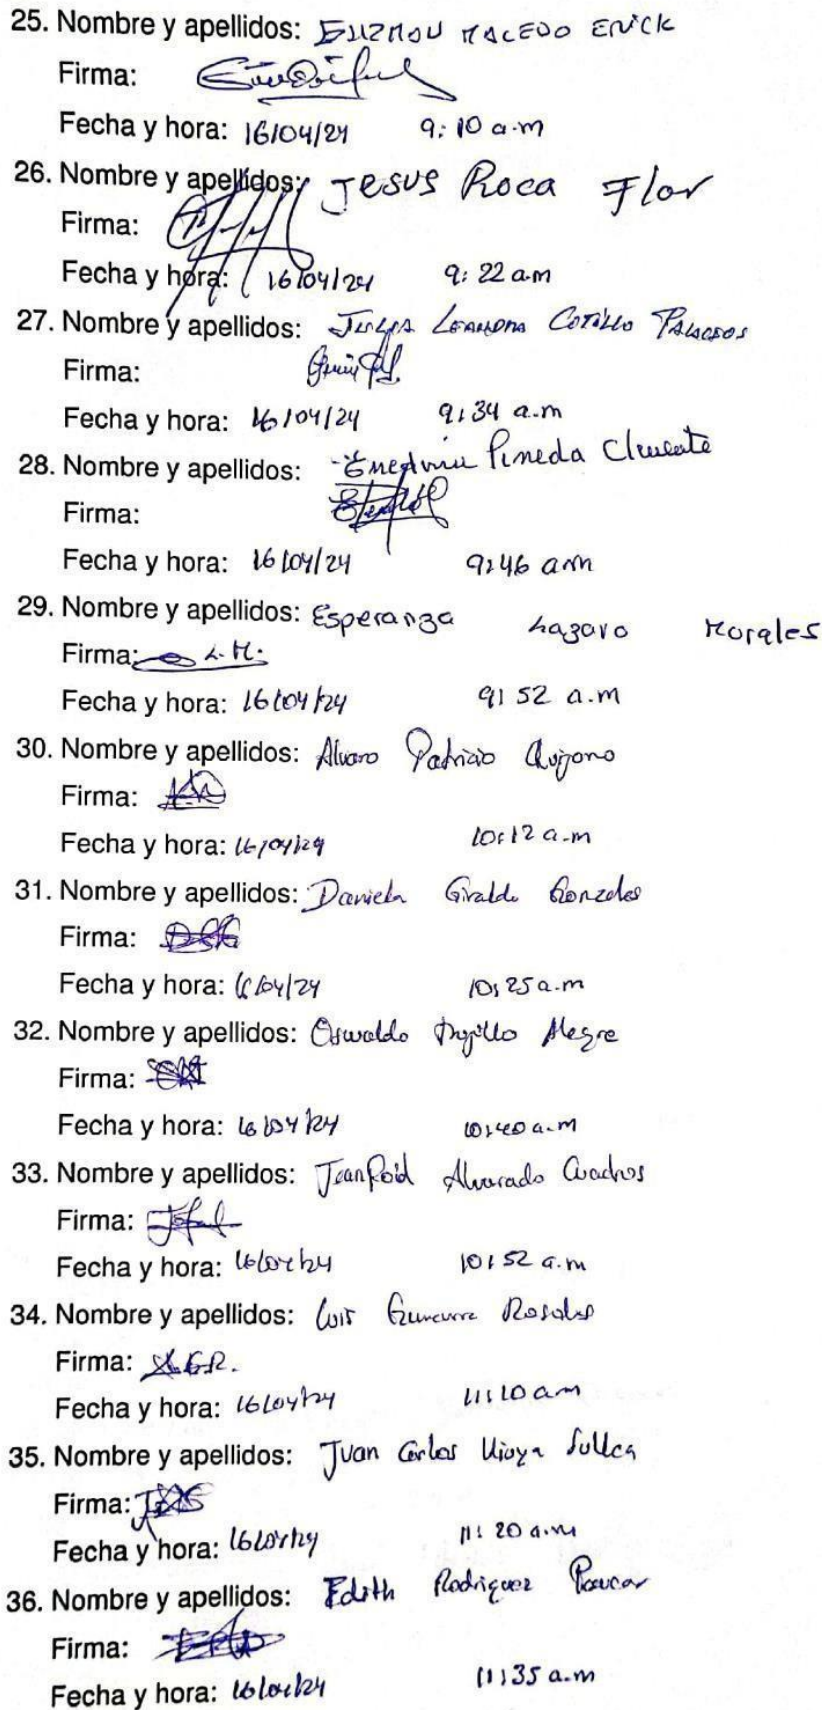 25. Nombre y apellidos: GUZMAN MACEDO ERICK
Firma:
Fecha y hora: 16/04/24 9:10 a.m
26. Nombre y apellidos: Jesus Roca Flor
Firma:
Fecha y hora: 16/04/24 9:22 a.m
27. Nombre y apellidos: Julia Leandra Cotillo Palacios
Firma:
Fecha y hora: 16/04/24 9:34 a.m
28. Nombre y apellidos: Pineda Clemente
Firma:
Fecha y hora: 16/04/24 9:46 am
29. Nombre y apellidos: Esperanza Lazaro Morales
Firma: L.M.
Fecha y hora: 16/04/24 9:52 a.m
30. Nombre y apellidos: Alvaro Patricio Quijano
Firma:
Fecha y hora: 16/04/24 10:12 a.m
31. Nombre y apellidos: Daniela Giraldo Gonzales
Firma:
Fecha y hora: 16/04/24 10:25 a.m
32. Nombre y apellidos: Oswaldo Trujillo Alegre
Firma:
Fecha y hora: 16/04/24 10:40 a.m
33. Nombre y apellidos: Alvarado Cuadros
Firma:
Fecha y hora: 16/04/24 10:52 a.m
34. Nombre y apellidos: Luis Rosales
Firma:
Fecha y hora: 16/04/24 11:10 am
35. Nombre y apellidos: Juan Carlos Sullca
Firma:
Fecha y hora: 16/04/24 11:20 a.m
36. Nombre y apellidos: Edith Rodriguez Paucar
Firma:
Fecha y hora: 16/04/24 11:35 a.m